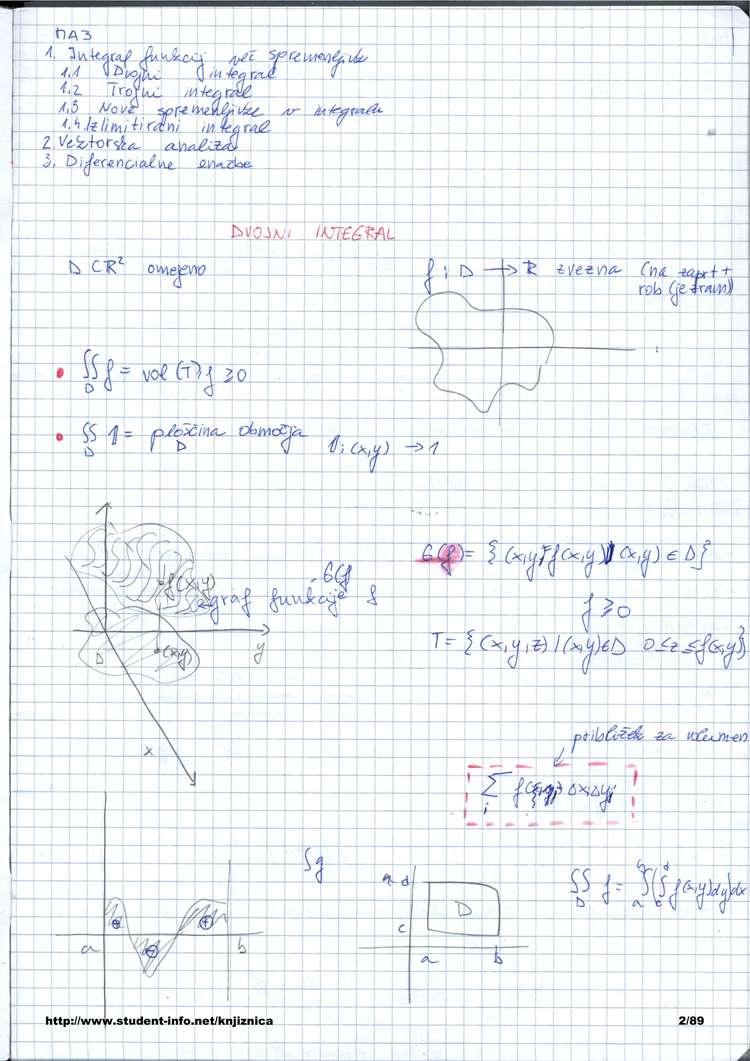 ПAЗ
1. Integral funkcij več spremenljivk
1.1 Dvojni integral
1.2 Trojni integral
1.3 Nove spremenljivke v integralu
1.4. Izlimitirani integral
2. Vektorska analiza
3. Diferencialne enačbe
DVOJNI INTEGRAL
D ⊂ ℝ² omejeno
f : D → ℝ zvezna (na zaprt +
rob (je zram))
• ∬_D f = vol (T), f ≥ 0
• ∬_D 1 = ploščina območja D
1 : (x,y) → 1
G(f) = { (x,y, f(x,y)) | (x,y) ∈ D }
f(x,y)
G(f
graf funkcije f
f ≥ 0
T = { (x,y,z) | (x,y) ∈ D 0 ≤ z ≤ f(x,y) }
D
(x,y)
y
x
približek za volumen
Σ_i f( ) Δx_i Δy_j
∫g
a
b
d
c
D
a
b
∬_D f = ∫_a^b (∫_c^d f(x,y) dy) dx
http://www.student-info.net/knjiznica
2/89